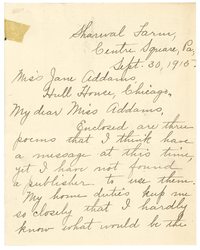 Sharwal Farm,
Centre Square, Pa.
Sept. 30, 1915.
Miss Jane Addams,
Hull House, Chicago.
My dear Miss Addams,
Enclosed are three
poems that I think have
a message at this time,
yet I have not found
a publisher to use them.
My home duties keep me
so closely that I hardly
know what would be the